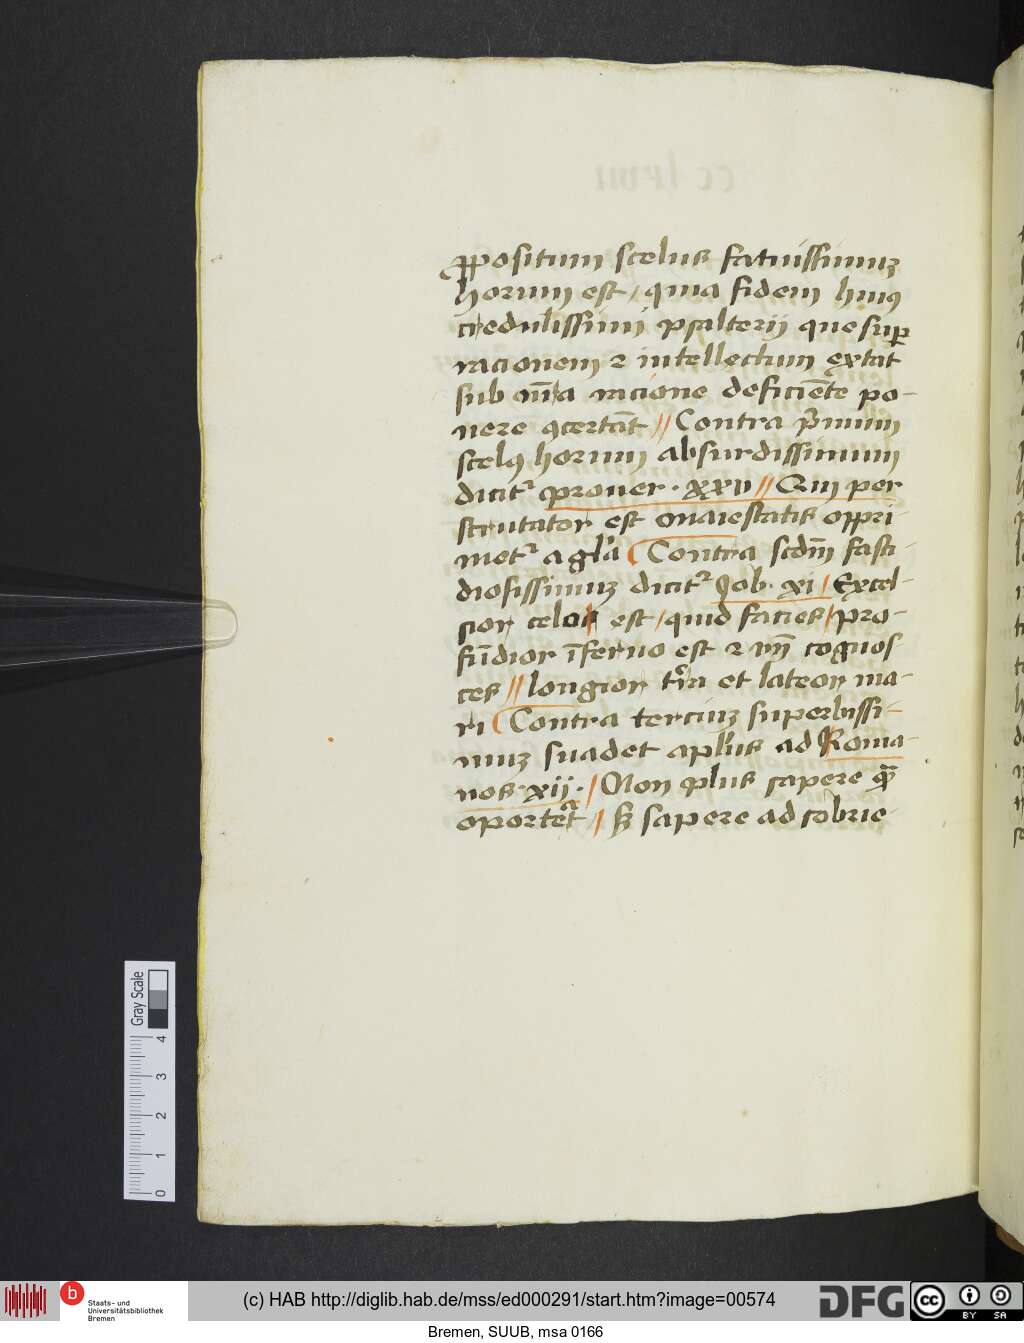 ꝓpositum scelus fatuissimuꝫ
horum est / quia fidem huiꝰ
credulissimi psalterij que suꝑ
racionem ⁊ intellectum extat
sub om̄ia racione deficiēte po-
nere ꝯcertāt // Contra p̄imum
scelꝰ horum absurdissimum
dicitᷣ prouer. xxv // Qui per
scrutator est maiestatis oppri-
metᷣ a gl̓a Contra scd̄m fasti-
diosissimuꝫ dicitᷣ Job. xi / Excel-
sior celo est / quid facies / pro-
fūdior īferno est ⁊ vn̄ cognos-
ces // longior tͥra et lateor ma-
ri Contra terciuꝫ superbissi-
muꝫ suadet apl̓us ad Roma-
nos. xij. / Non plus sapere qͣ̄
oportet / Sꝫ sapere ad sobrie-
Gray Scale
4
3
2
1
0
b
Staats- und
Universitätsbibliothek
Bremen
(c) HAB http://diglib.hab.de/mss/ed000291/start.htm?image=00574
DFG
cc
BY
SA
Bremen, SUUB, msa 0166